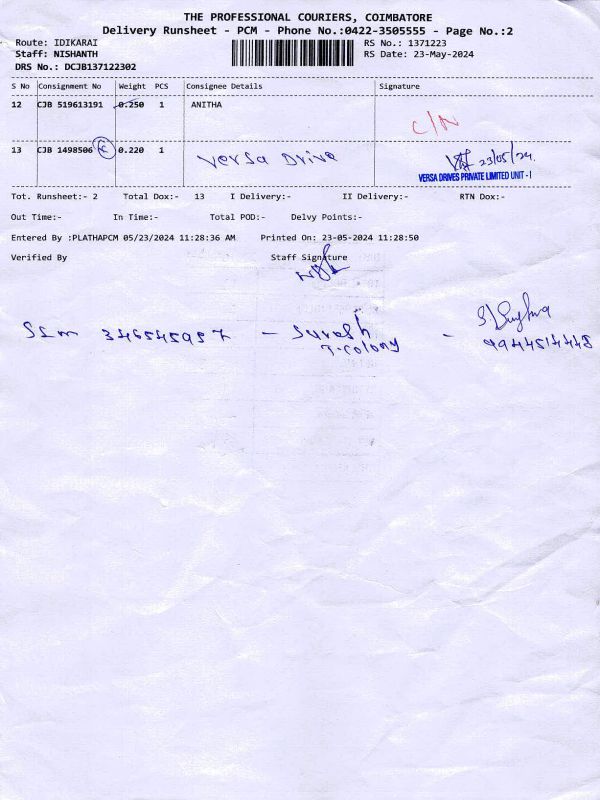 THE PROFESSIONAL COURIERS, COIMBATORE
Delivery Runsheet - PCM - Phone No.:0422-3505555 - Page No.:2
Route: IDIKARAI RS No.: 1371223
Staff: NISHANTH RS Date: 23-May-2024
DRS No.: DCJB137122302
S No Consignment No Weight PCS Consignee Details Signature
12 CJB 519613191 0.250 1 ANITHA C/N
13 CJB 1498506 0.220 1 Versa Drive 23/05/24.
VERSA DRIVES PRIVATE LIMITED UNIT - I
Tot. Runsheet:- 2 Total Dox:- 13 I Delivery:- II Delivery:- RTN Dox:-
Out Time:- In Time:- Total POD:- Delvy Points:-
Entered By :PLATHAPCM 05/23/2024 11:28:36 AM Printed On: 23-05-2024 11:28:50
Verified By Staff Signature
346545957 - Suresh -
T-colony 9944514448